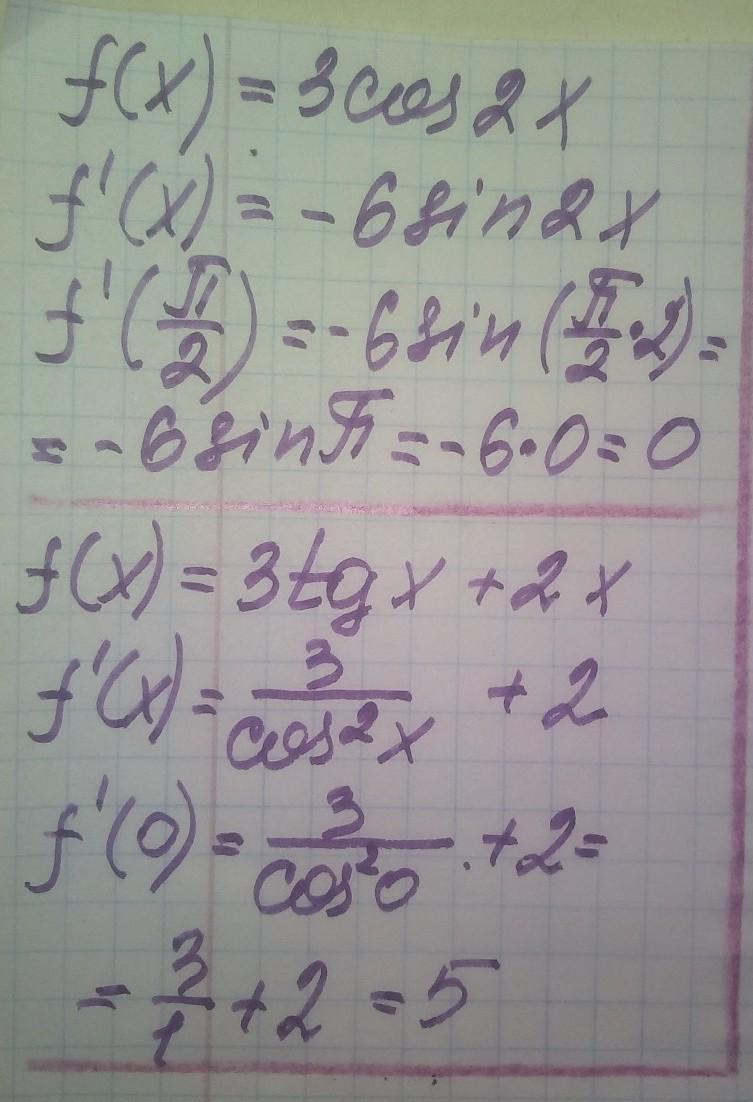 f(x) = 3cos2x
f'(x) = -6sin2x
f'(π/2) = -6sin(π/2·2) =
= -6sinπ = -6·0 = 0
f(x) = 3tgx + 2x
f'(x) = 3/cos²x + 2
f'(0) = 3/cos²0 + 2 =
= 3/1 + 2 = 5